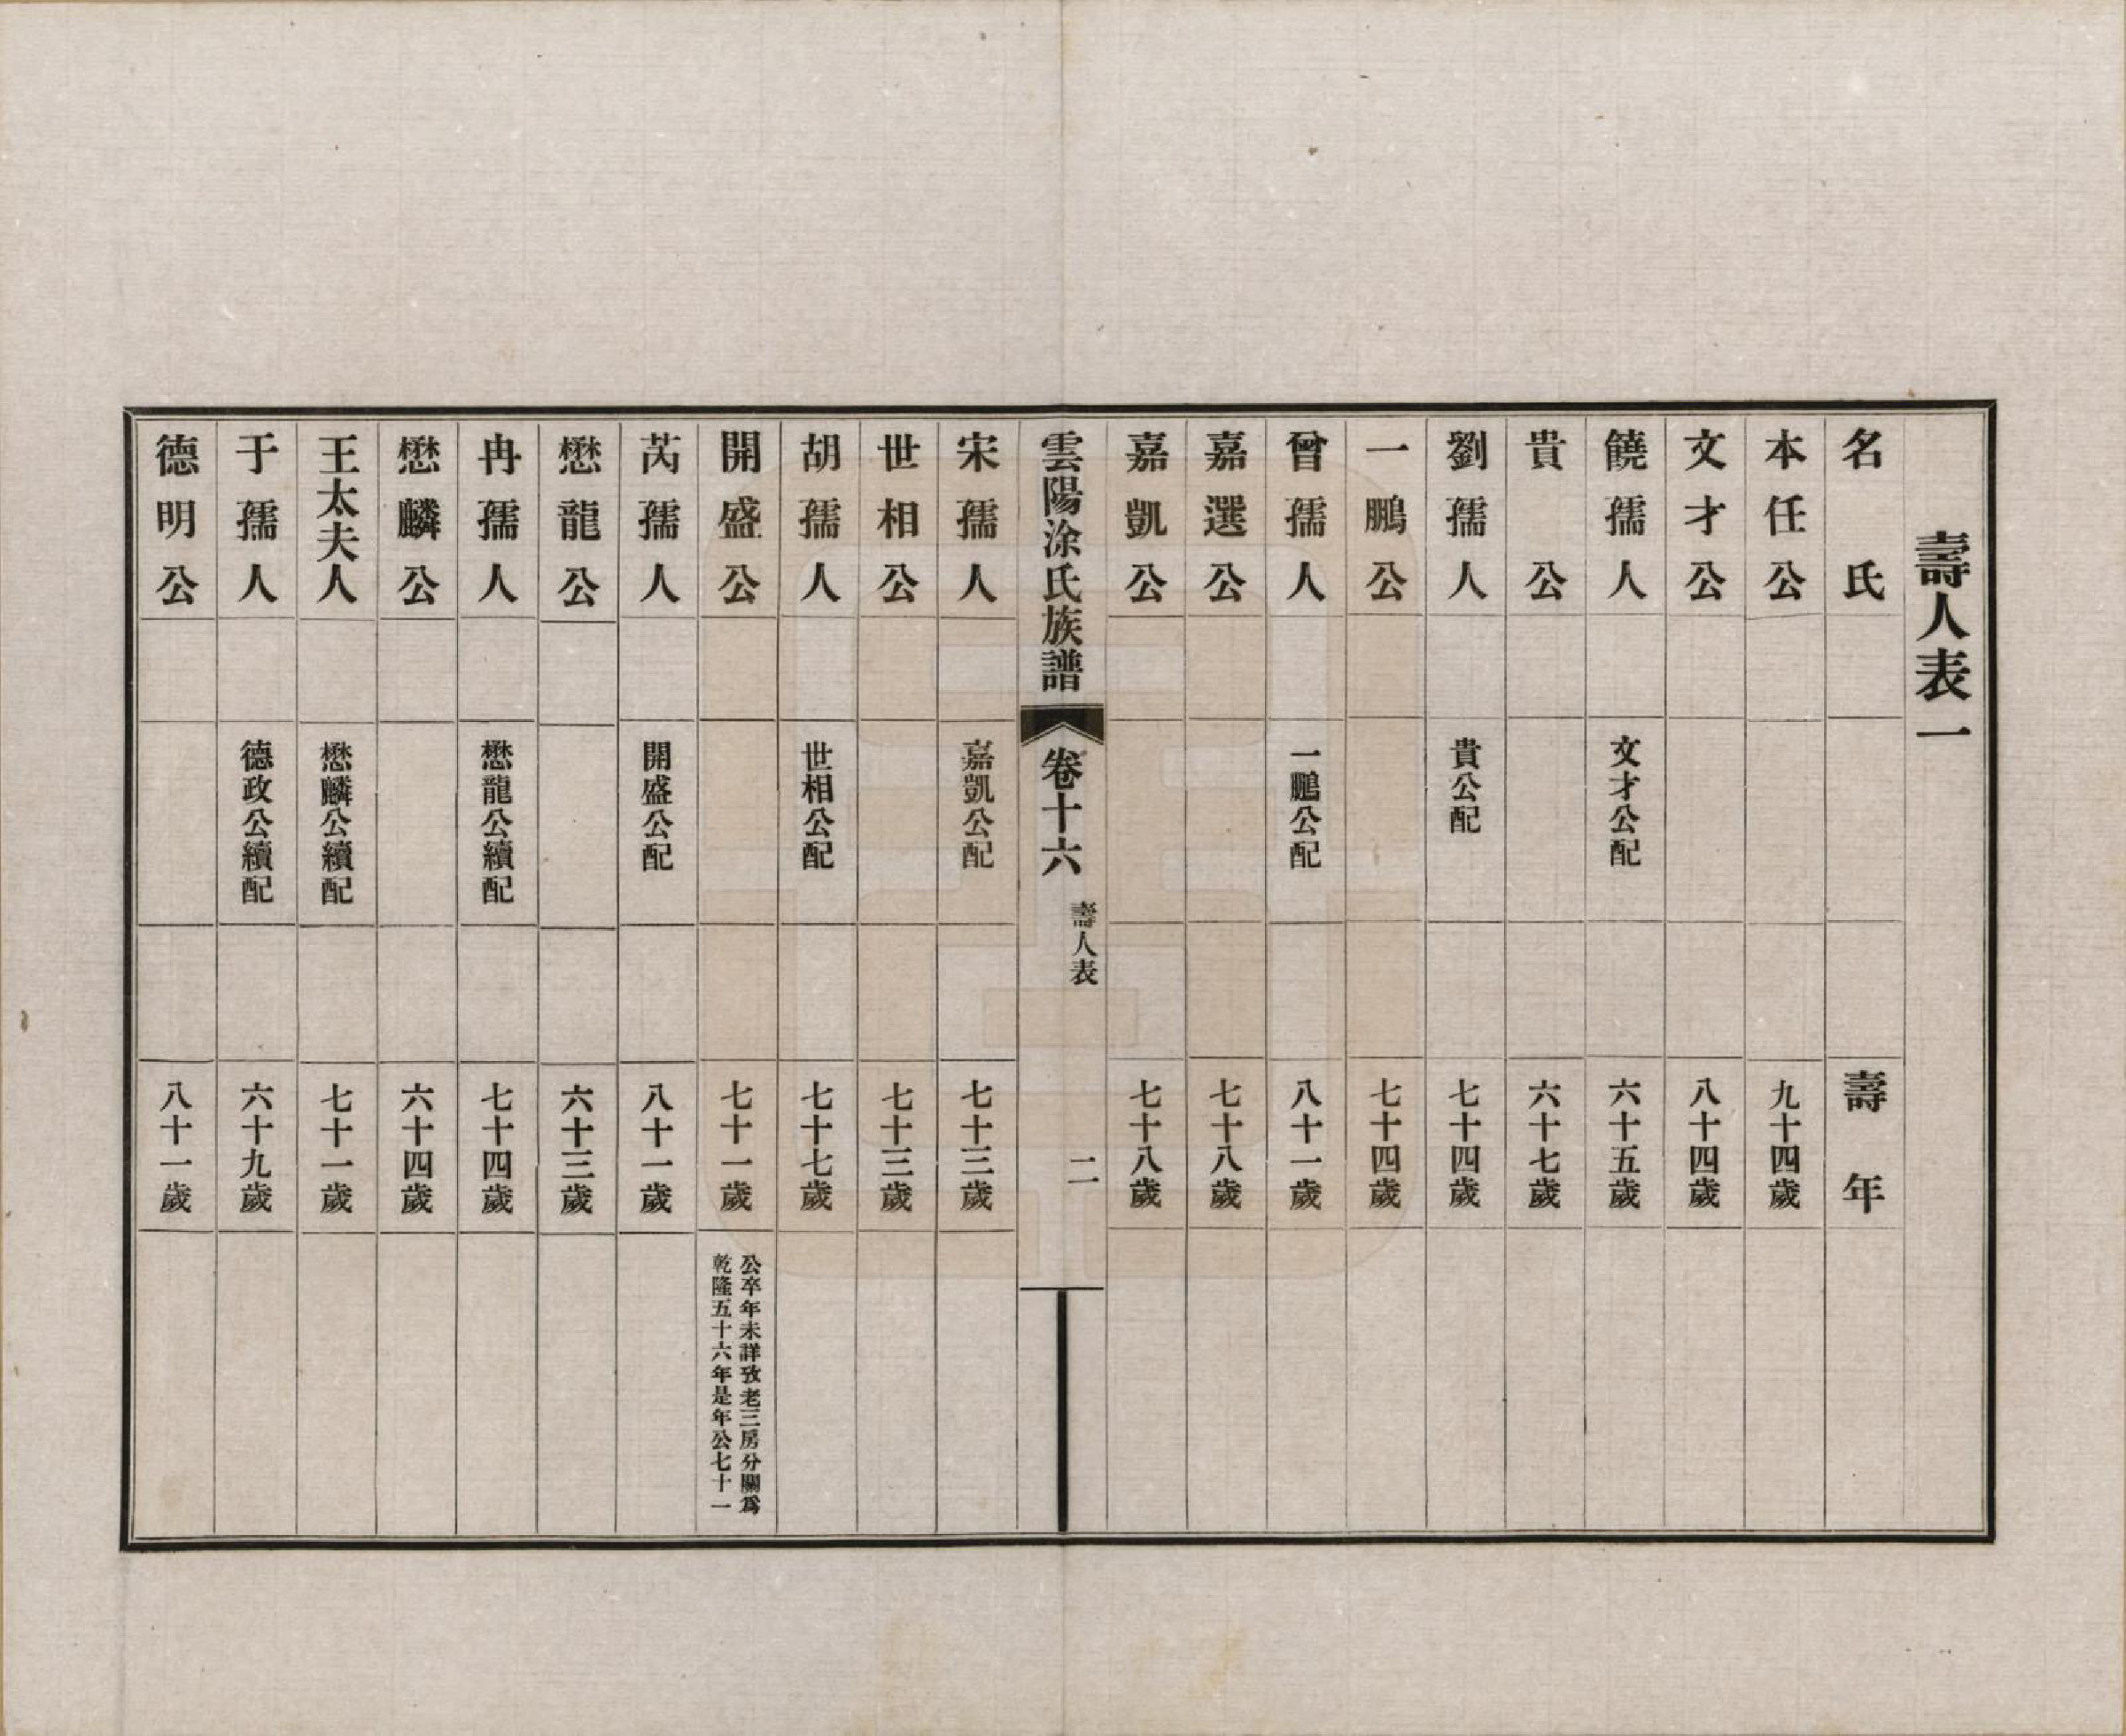 壽人表一
名氏 壽年
本任公 九十四歲
文才公 八十四歲
饒孺人 文才公配 六十五歲
貴公 六十七歲
劉孺人 貴公配 七十四歲
一鵬公 七十四歲
曾孺人 一鵬公配 八十一歲
嘉選公 七十八歲
嘉凱公 七十八歲
雲陽涂氏族譜 卷十六 壽人表 二
宋孺人 嘉凱公配 七十三歲
世相公 七十三歲
胡孺人 世相公配 七十七歲
開盛公 七十一歲 公卒年未詳攷老三房分關爲
乾隆五十六年是年公七十一
芮孺人 開盛公配 八十一歲
懋龍公 六十三歲
冉孺人 懋龍公續配 七十四歲
懋麟公 六十四歲
王太夫人 懋麟公續配 七十一歲
于孺人 德政公續配 六十九歲
德明公 八十一歲